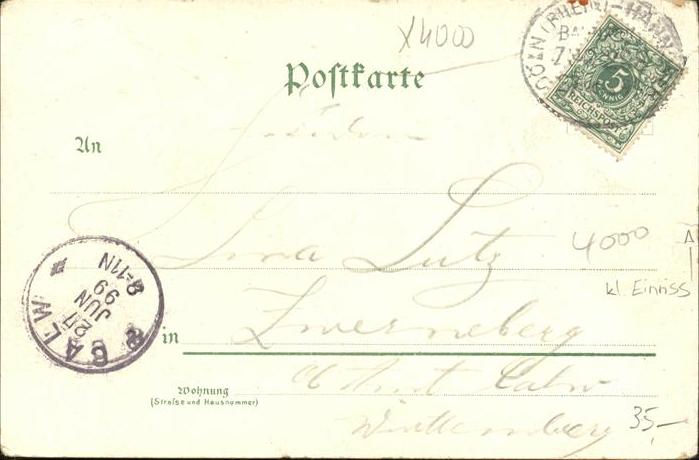 X4000
CÖLN (RHEIN) - HANN
5
PFENNIG
REICHSPOST
Postkarte
An
Fräulein
Lina Lutz
4000
kl. Einriss
in
Zwerneberg
O/Amt Calw
Wohnung
(Strasse und Hausnummer)
Württemberg
35,-
CALW
27
JUN
99
8-11N